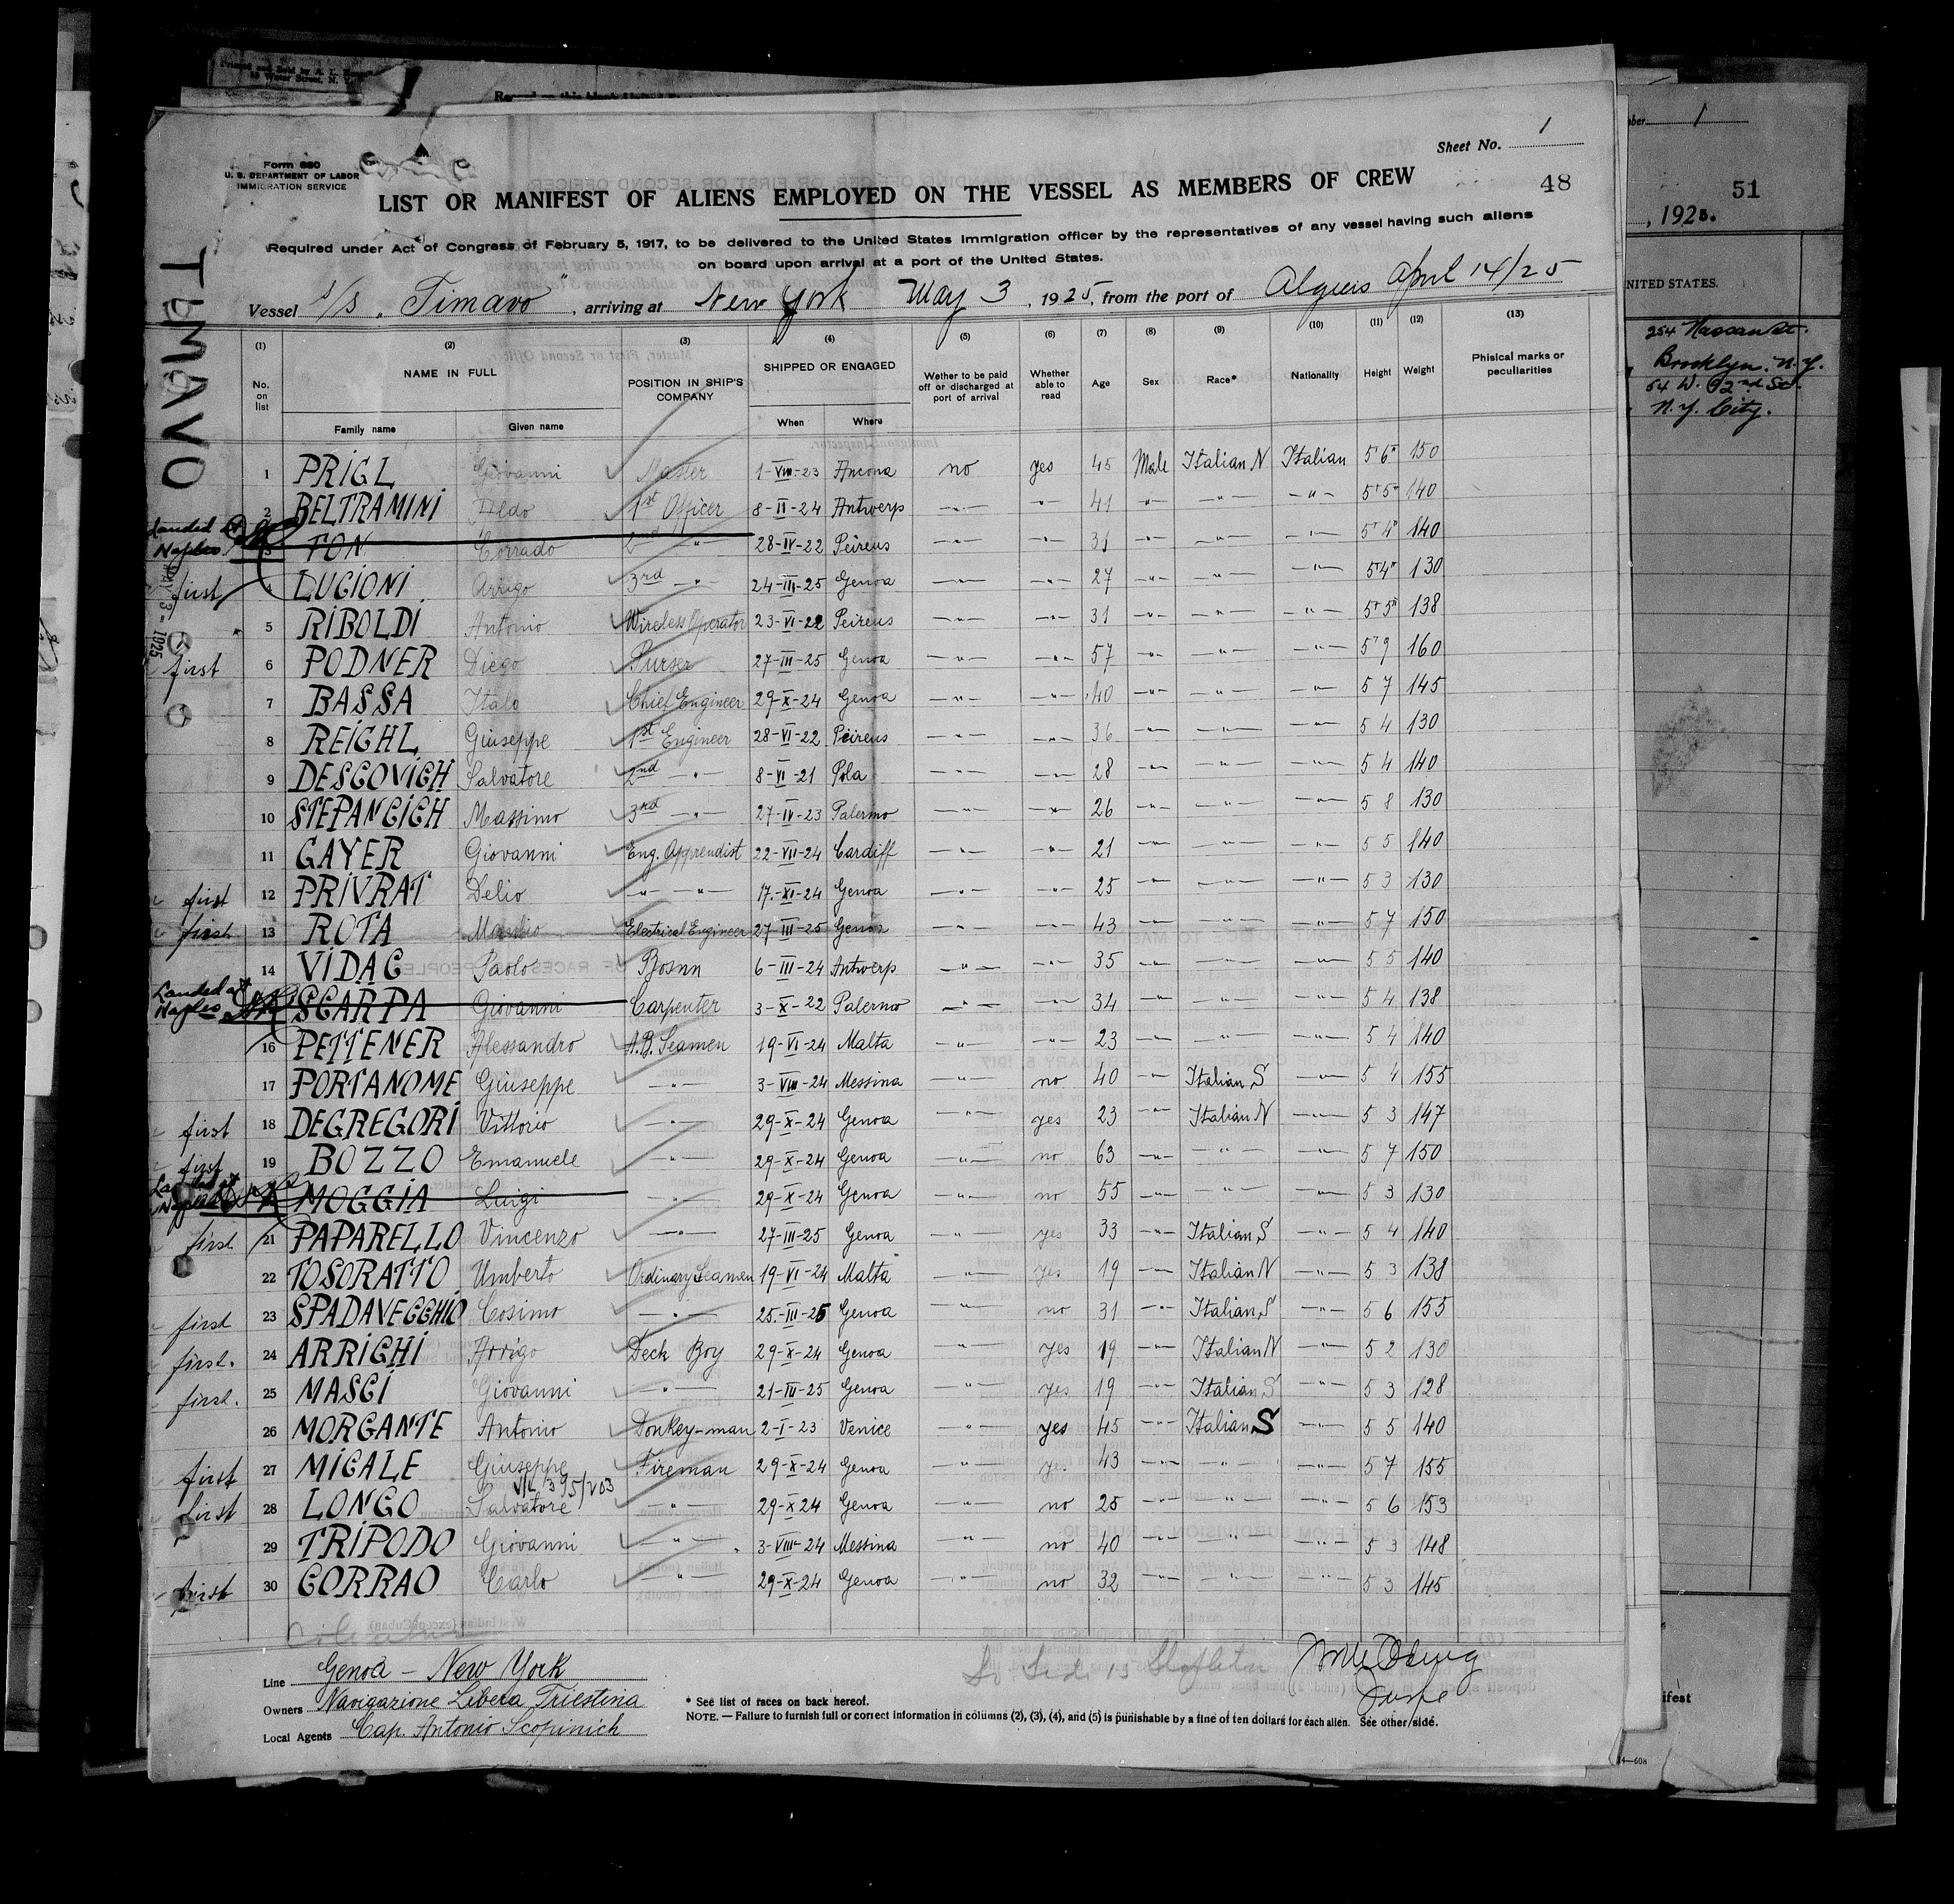 Form 680
U. S. DEPARTMENT OF LABOR
IMMIGRATION SERVICE
Sheet No. 1
48
LIST OR MANIFEST OF ALIENS EMPLOYED ON THE VESSEL AS MEMBERS OF CREW
Required under Act of Congress of February 5, 1917, to be delivered to the United States Immigration officer by the representatives of any vessel having such aliens
on board upon arrival at a port of the United States.
Vessel S/S. "Timavo", arriving at New York May 3, 1925, from the port of Algiers April 14/25
TIMAVO
(1) (2) (3) (4) (5) (6) (7) (8) (9) (10) (11) (12) (13)
No. on list NAME IN FULL POSITION IN SHIP'S COMPANY SHIPPED OR ENGAGED Wether to be paid off or discharged at port of arrival Whether able to read Age Sex Race* Nationality Height Weight Phisical marks or peculiarities
Family name Given name When Where
1 PRIGL Giovanni Master 1-VIII-23 Ancona no yes 45 Male Italian N Italian 5'6" 150
2 BELTRAMINI Aldo 1st Officer 8-II-24 Antwerp -"- -"- 41 -"- -"- -"- 5'5" 140
Landed at Naples 3 TON Corrado 2nd -"- 28-IV-22 Peireus -"- -"- 31 -"- -"- -"- 5'4" 140
first 4 LUCIONI Arrigo 3rd -"- 24-III-25 Genoa -"- -"- 27 -"- -"- -"- 5'4" 130
5 RIBOLDI Antonio Wireless Operator 23-VI-22 Peireus -"- -"- 31 -"- -"- -"- 5'5" 138
first 6 PODNER Diego Purser 27-III-25 Genoa -"- -"- 57 -"- -"- -"- 5'9 160
7 BASSA Italo Chief Engineer 29-X-24 Genoa -"- -"- 40 -"- -"- -"- 5 7 145
8 REICHL Giuseppe 1st Engineer 28-VI-22 Peireus -"- -"- 36 -"- -"- -"- 5 4 130
9 DESCOVICH Salvatore 2nd -"- 8-VI-21 Pola -"- -"- 28 -"- -"- -"- 5 4 140
10 STEPANCICH Massimo 3rd -"- 27-IV-23 Palermo -"- -"- 26 -"- -"- -"- 5 8 130
11 GAYER Giovanni Eng. Apprendist 22-VII-24 Cardiff -"- -"- 21 -"- -"- -"- 5 5 140
first 12 PRIVRAT Delio -"- -"- 17-XI-24 Genoa -"- -"- 25 -"- -"- -"- 5 3 130
first 13 ROTA Electrical Engineer 27-III-25 Genoa -"- -"- 43 -"- -"- -"- 5 7 150
14 VIDAC Paolo Bosnn 6-III-24 Antwerp -"- -"- 35 -"- -"- -"- 5 5 140
Landed at Naples SCARPA Giovanni Carpenter 3-X-22 Palermo -"- -"- 34 -"- -"- -"- 5 4 138
16 PETTENER Alessandro A.B. Seamen 19-VI-24 Malta -"- -"- 23 -"- -"- -"- 5 4 140
17 PORTANOME Giuseppe -"- 3-VIII-24 Messina -"- no 40 -"- Italian S -"- 5 4 155
first 18 DEGREGORI Vittorio -"- 29-X-24 Genoa -"- yes 23 -"- Italian N -"- 5 3 147
first 19 BOZZO Emanuele -"- 29-X-24 Genoa -"- no 63 -"- -"- -"- 5 7 150
Landed at Naples MOGGIA Luigi -"- 29-X-24 Genoa -"- no 55 -"- -"- -"- 5 3 130
first 21 PAPARELLO Vincenzo -"- 27-III-25 Genoa -"- yes 33 -"- Italian S -"- 5 4 140
22 TOSORATTO Umberto Ordinary Seamen 19-VI-24 Malta -"- yes 19 -"- Italian N -"- 5 3 138
first 23 SPADAVECCHIO Cosimo -"- 25-III-25 Genoa -"- no 31 -"- Italian S -"- 5 6 155
first. 24 ARRIGHI Arrigo Deck Boy 29-X-24 Genoa -"- yes 19 -"- Italian N -"- 5 2 130
first. 25 MASCI Giovanni -"- 21-III-25 Genoa -"- yes 19 -"- Italian S -"- 5 3 128
26 MORGANTE Antonio Donkey-man 2-I-23 Venice -"- yes 45 -"- Italian S -"- 5 5 140
first 27 MICALE Giuseppe Fireman 29-X-24 Genoa -"- yes 43 -"- -"- -"- 5 7 155
first 28 LONGO Salvatore -"- 29-X-24 Genoa -"- no 25 -"- -"- -"- 5 6 153
29 TRIPODO Giovanni -"- 3-VIII-24 Messina -"- no 40 -"- -"- -"- 5 3 148
first 30 CORRAO Carlo -"- 29-X-24 Genoa -"- no 32 -"- -"- -"- 5 3 145
Line Genoa - New York
Owners Navigazione Libera Triestina
Local Agents Cap. Antonio Scopinich
* See list of races on back hereof.
NOTE. — Failure to furnish full or correct information in columns (2), (3), (4), and (5) is punishable by a fine of ten dollars for each alien. See other side.
1
51
, 1925.
NITED STATES.
254 Nassau St.
Brooklyn. N.Y.
54 W. 92nd St.
N.Y. City.
ifest
14—608